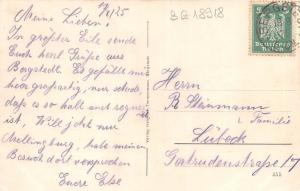 Meine Lieben! 8/1/25
In größter Eile sende
Euch herzl. Grüße aus
Borgstedt. Es gefällt mir
hier großartig, nur schade,
daß es so kalt und regnet
ist. Will jetzt nur
habe meinen
Besuch dort versprochen
Eure Else
BG 18918
Deutsches Reich
Herrn
R. Steinmann
u. Familie
Lübeck
Gertrudenstraße 17